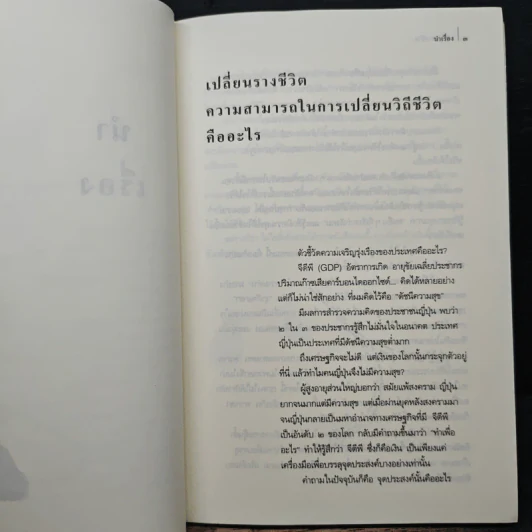 นำเรื่อง | ๓
นำ
เรื่อง
เปลี่ยนรางชีวิต
ความสามารถในการเปลี่ยนวิถีชีวิต
คืออะไร
ตัวชี้วัดความเจริญรุ่งเรืองของประเทศคืออะไร?
จีดีพี (GDP) อัตราการเกิด อายุขัยเฉลี่ยประชากร
ปริมาณก๊าซเสียคาร์บอนไดออกไซด์... คิดได้หลายอย่าง
แต่ก็ไม่น่าใช่สักอย่าง ที่ผมคิดไว้คือ "ดัชนีความสุข"
มีผลการสำรวจความคิดของประชาชนญี่ปุ่น พบว่า
๒ ใน ๓ ของประชากรรู้สึกไม่มั่นใจในอนาคต ประเทศ
ญี่ปุ่นเป็นประเทศที่มีดัชนีความสุขต่ำมาก
ถึงเศรษฐกิจจะไม่ดี แต่เงินของโลกนั้นกระจุกตัวอยู่
ที่นี่ แล้วทำไมคนญี่ปุ่นจึงไม่มีความสุข?
ผู้สูงอายุส่วนใหญ่บอกว่า สมัยแพ้สงคราม ญี่ปุ่น
ยากจนมากแต่มีความสุข แต่เมื่อผ่านยุคหลังสงครามมา
จนญี่ปุ่นกลายเป็นมหาอำนาจทางเศรษฐกิจที่มี จีดีพี
เป็นอันดับ ๒ ของโลก กลับมีคำถามขึ้นมาว่า "ทำเพื่อ
อะไร" ทำให้รู้สึกว่า จีดีพี ซึ่งก็คือเงิน เป็นเพียงแค่
เครื่องมือเพื่อบรรลุจุดประสงค์บางอย่างเท่านั้น
คำถามในปัจจุบันก็คือ จุดประสงค์นั้นคืออะไร